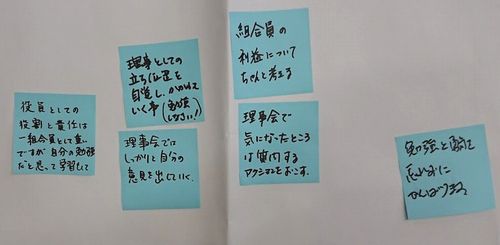 役員としての
役割と責任は
一組合員として重い
ですが自分の勉強
だと思って学習して
理事としての
立ち位置を
自覚し、かかわって
いく事
理事会では
しっかりと自分の
意見を出していく、
組合員の
利益について
ちゃんと考える
理事会で
気になったところ
は質問する
アクションをおこす、
勉強と
忘れずに
がんばります